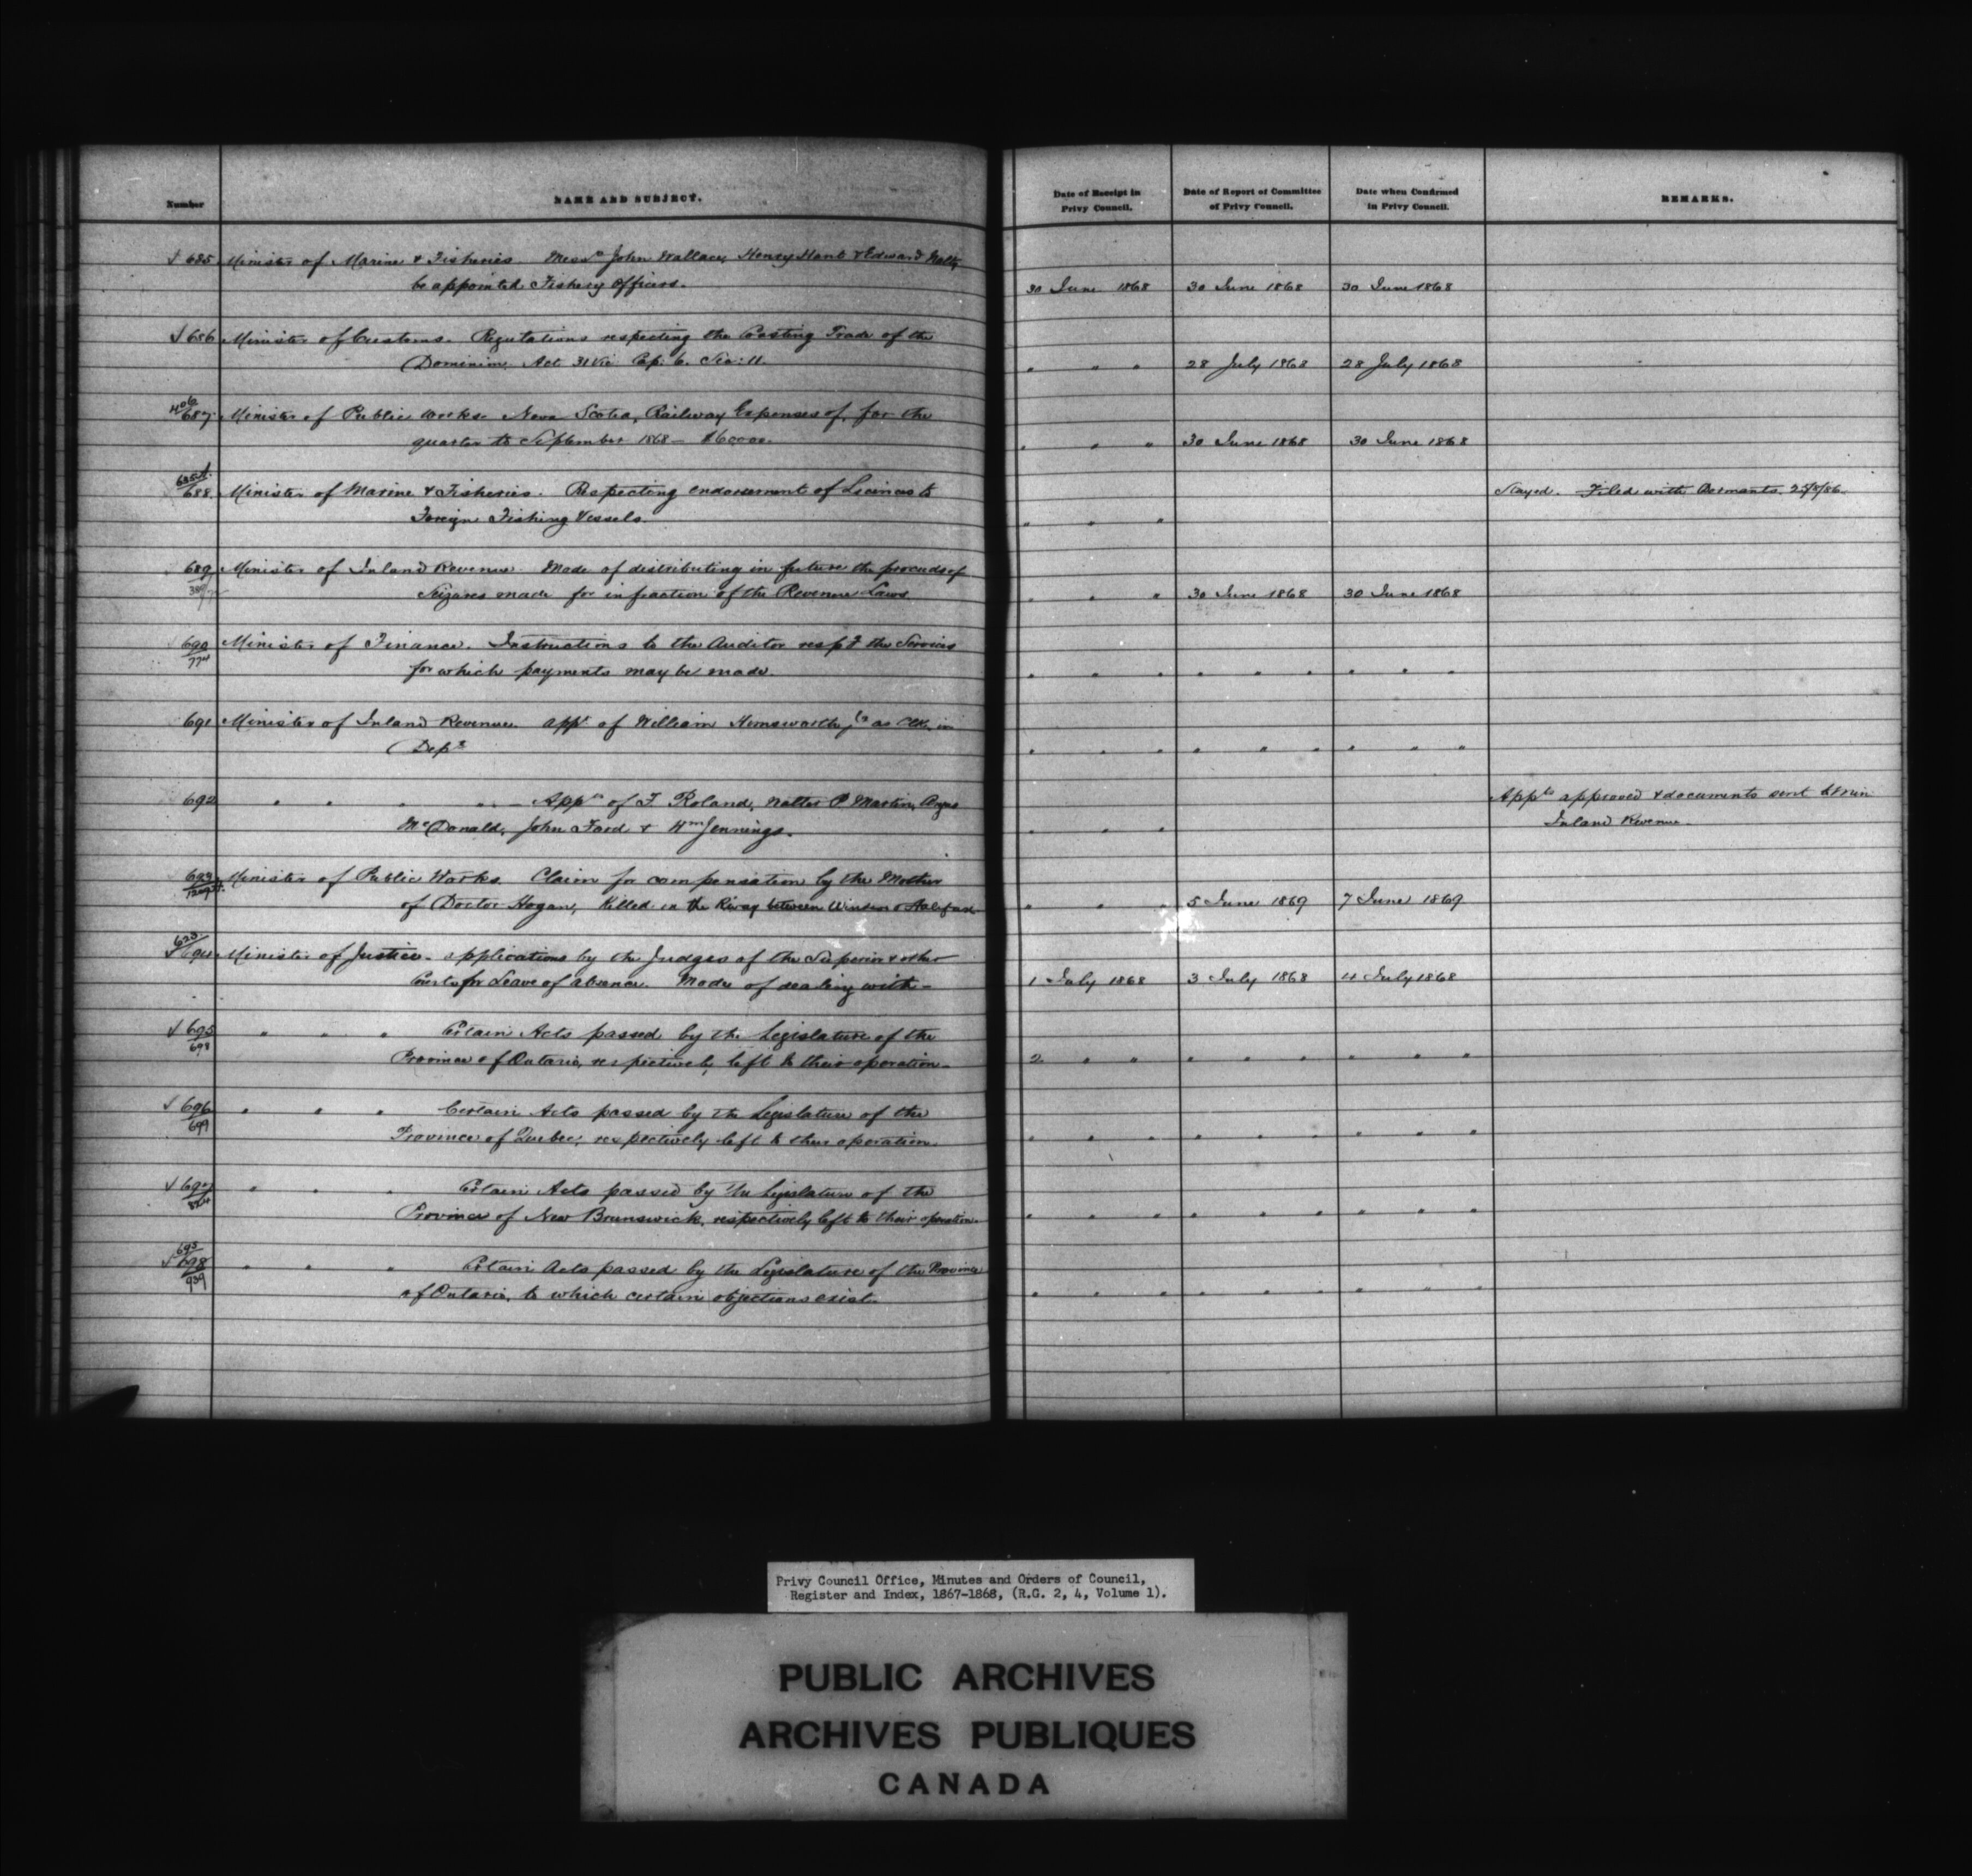 Number NAME AND SUBJECT. Date of Receipt in Privy Council. Date of Report of Committee of Privy Council. Date when Confirmed in Privy Council. REMARKS.
685 Minister of Marine & Fisheries. Messrs John Wallace, Henry Hunt & Edward
be appointed Fishery Officers. 30 June 1868 30 June 1868 30 June 1868
686 Minister of Customs. Regulations respecting the Coasting Trade of the
Dominion. Act 31 Vic: Cap: 6. Sec: 11. " " " 28 July 1868 28 July 1868
406
687 Minister of Public Works. Nova Scotia, Railway Expenses of, for the
quarter to September 1868 — " " " 30 June 1868 30 June 1868
688 Minister of Marine & Fisheries. Respecting endorsement of Licences to Stayed. Filed with Dormants 25/8/86
Foreign Fishing Vessels. " " "
689 Minister of Inland Revenue. Mode of distributing in future the proceeds of
Seizures made for infraction of the Revenue Laws " " " 30 June 1868 30 June 1868
690 Minister of Finance. Instructions to the Auditor respg the Services
774
for which payments may be made. " " " " " " " " "
691 Minister of Inland Revenue. Appt of William Hemsworth jr as Clk. in
Dept " " " " " " " " "
692 " " " " — Appts of F Roland, Walter P Martin, Angus Appts approved & documents sent to Min
McDonald, John Ford & Wm Jennings. " " " Inland Revenue.
693 Minister of Public Works. Claim for compensation by the Mother
of Doctor Hogan, Killed on the Rlway between Windsor & Halifax " " " 5 June 1869 7 June 1869
623
694 Minister of Justice. applications by the Judges of the Superior & other
Courts for Leave of absence. Mode of dealing with — 1 July 1868 3 July 1868 4 July 1868
695 " " " Certain Acts passed by the Legislature of the
698
Province of Ontario, respectively left to their operation — 2 " " " " " " " "
696 " " " Certain Acts passed by the Legislature of the
699
Province of Quebec, respectively left to their operation. " " " " " " " " "
697 " " " Certain Acts passed by the Legislature of the
Province of New Brunswick, respectively left to their operation. " " " " " " " " "
695
698 " " " Certain Acts passed by the Legislature of the Province
939
of Ontario, to which certain objections exist. " " " " " " " " "
Privy Council Office, Minutes and Orders of Council,
Register and Index, 1867-1868, (R.G. 2, 4, Volume 1).
PUBLIC ARCHIVES
ARCHIVES PUBLIQUES
CANADA